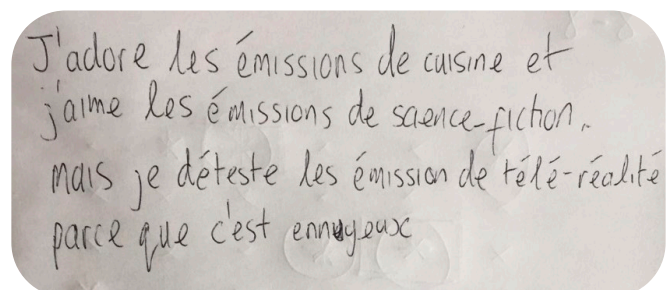 J'adore les émissions de cuisine et
j'aime les émissions de science-fiction.
mais je déteste les émission de télé-réalité
parce que c'est ennuyeux